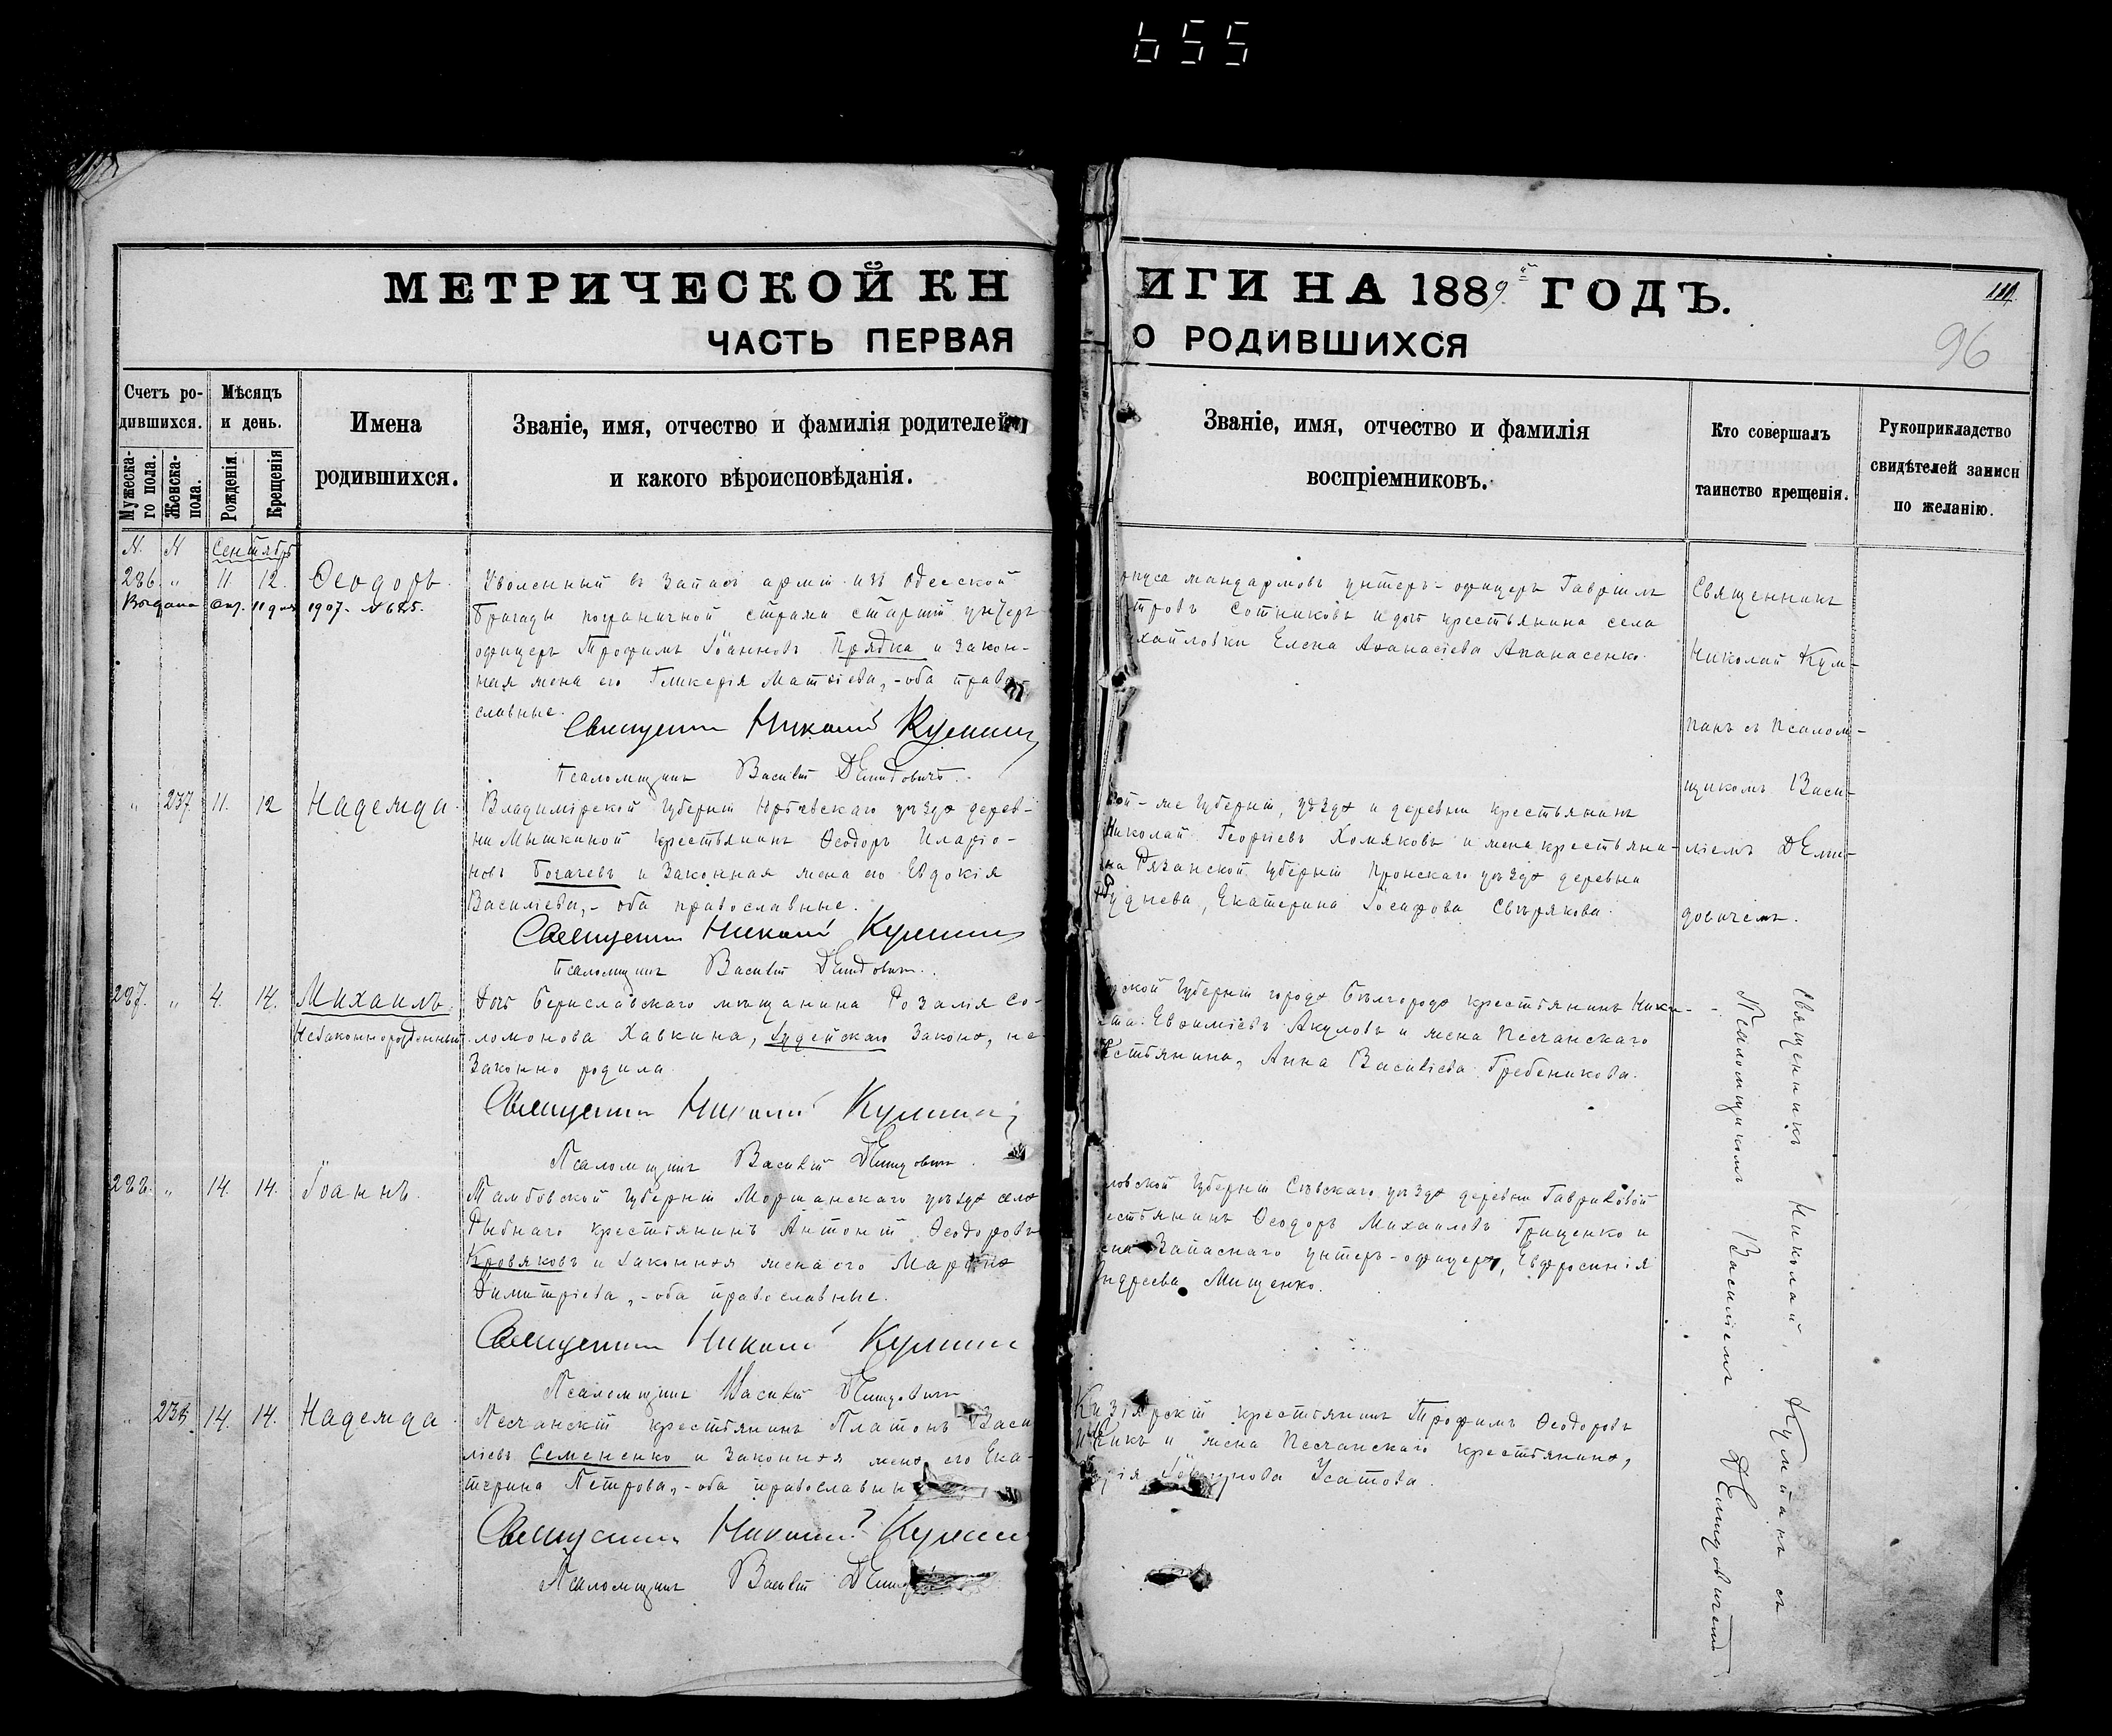 655
МЕТРИЧЕСКОЙ КНИГИ НА 1889й ГОДЪ.
114.
96
ЧАСТЬ ПЕРВАЯ О РОДИВШИХСЯ
Счетъ ро-
дившихся.
Мѣсяцъ
и день.
Мужеска-
го пола.
Женска-
пола.
Рожденія.
Крещенія
Имена
родившихся.
Званіе, имя, отчество и фамилія родителей
и какого вѣроисповѣданія.
Званіе, имя, отчество и фамилія
воспріемниковъ.
Кто совершалъ
таинство крещенія.
Рукоприкладство
свидѣтелей записи
по желанію.
Сентябрь
236. " 11 12. Ѳеодоръ.
1907. №625.
Уволенный въ запасъ арміи изъ Одесской
бригады пограничной стражи старшій унтеръ
офицеръ Трофимъ Іоанновъ Прядка и закон-
ная жена его Гликерія Матѳіева, - оба право-
славные.
Священникъ Николай Кулпанъ
Псаломщикъ Василій Демидовичъ.
жандармовъ унтеръ-офицеръ Гавріилъ
Сотниковъ и дочь крестьянина села
Елена Аѳанасіева Апанасенко.
Священникъ
Николай Кул-
панъ съ псалом-
щикомъ Васи-
ліемъ Деми-
довичемъ.
" 237 11. 12 Надежда.
Владимірской губерніи уѣзда дерев-
ни Мышкиной крестьянинъ Ѳеодоръ Иларіо-
новъ Богачевъ и законная жена его Евдокія
Василіева, - оба православные.
Священникъ Николай Кулпанъ
Псаломщикъ Василій Демидовичъ.
той-же губерніи, уѣзда и деревни крестьянинъ
Николай Георгіевъ Хомяковъ и жена крестьяни-
на Рязанской губерніи Пронскаго уѣзда деревни
Екатерина Іосифова Свѣрякова.
237. " 4. 14. Михаилъ.
Незаконнорожденный.
Дочь бериславскаго мѣщанина Розалія Со-
ломонова Хавкина, Іудейскаго закона, не-
законно родила.
Священникъ Николай Кулпанъ
Псаломщикъ Василій Демидовичъ.
губерніи города Бѣлгорода крестьянинъ Ники-
та Евѳиміевъ Акуловъ и жена песчанскаго
крестьянина, Анна Василіева Гребеникова.
Священникъ Николай Кулпанъ съ
псаломщикомъ Василіемъ Демидовичемъ
238. " 14. 14. Іоаннъ.
Тамбовской губерніи Моршанскаго уѣзда села
Рыбнаго крестьянинъ Антоній Ѳеодоровъ
Кровяковъ и законная жена его Марѳа
Димитріева, - оба православные.
Священникъ Николай Кулпанъ
Псаломщикъ Василій Демидовичъ
губерніи Сѣвскаго уѣзда деревни Гавриковой
крестьянинъ Ѳеодоръ Михаиловъ Гриценко и
жена запаснаго унтеръ-офицера, Евфросинія
Андреева Мищенко.
" 238 14. 14. Надежда.
Песчанскій крестьянинъ Платонъ Васи-
ліевъ Семененко и законная жена его Ека-
терина Петрова, - оба православные
Священникъ Николай Кулпанъ
Псаломщикъ Василій Демидовичъ
крестьянинъ Трофимъ Ѳеодоровъ
и жена песчанскаго крестьянина,
Усатова.